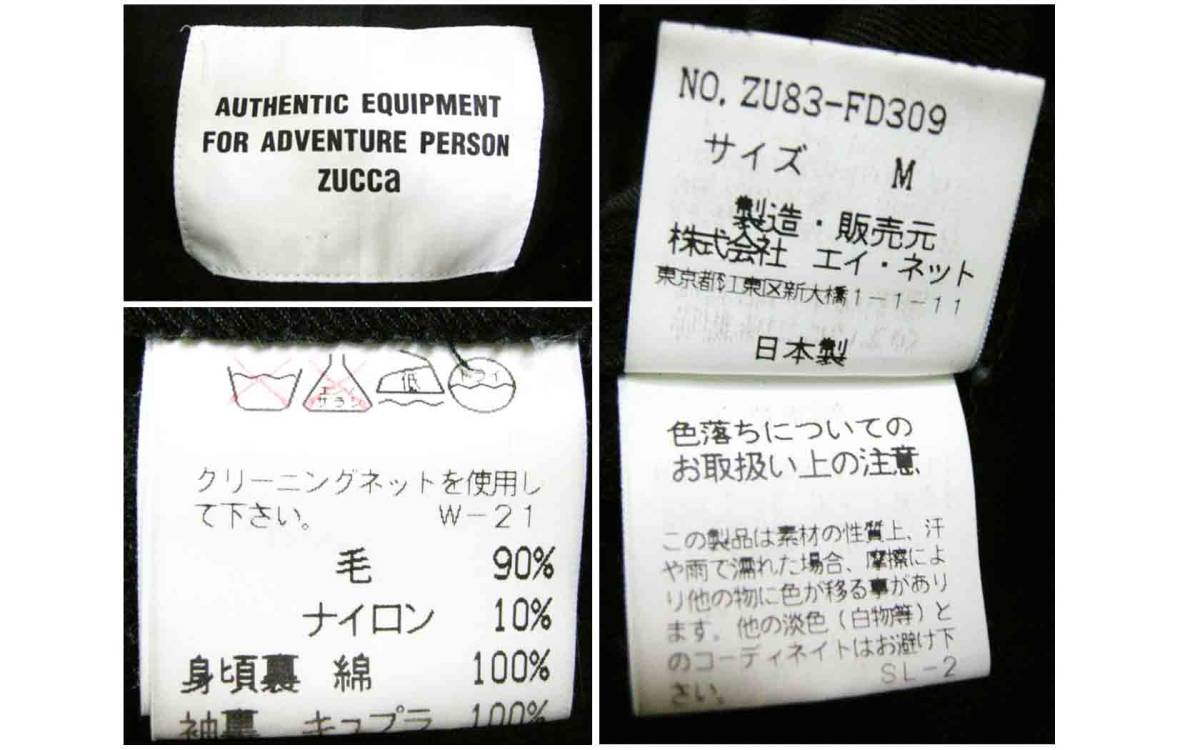 AUTHENTIC EQUIPMENT
FOR ADVENTURE PERSON
ZUCCa
エンソ
サラシ
低
ドライ
クリーニングネットを使用し
て下さい。 W-21
毛 90%
ナイロン 10%
身頃裏 綿 100%
袖裏 キュプラ 100%
NO. ZU83-FD309
サイズ M
製造・販売元
株式会社 エイ・ネット
東京都江東区新大橋1-1-11
日本製
色落ちについての
お取扱い上の注意
この製品は素材の性質上、汗
や雨で濡れた場合、摩擦によ
り他の物に色が移る事があり
ます。他の淡色(白物等)と
のコーディネイトはお避け下
さい。 SL-2